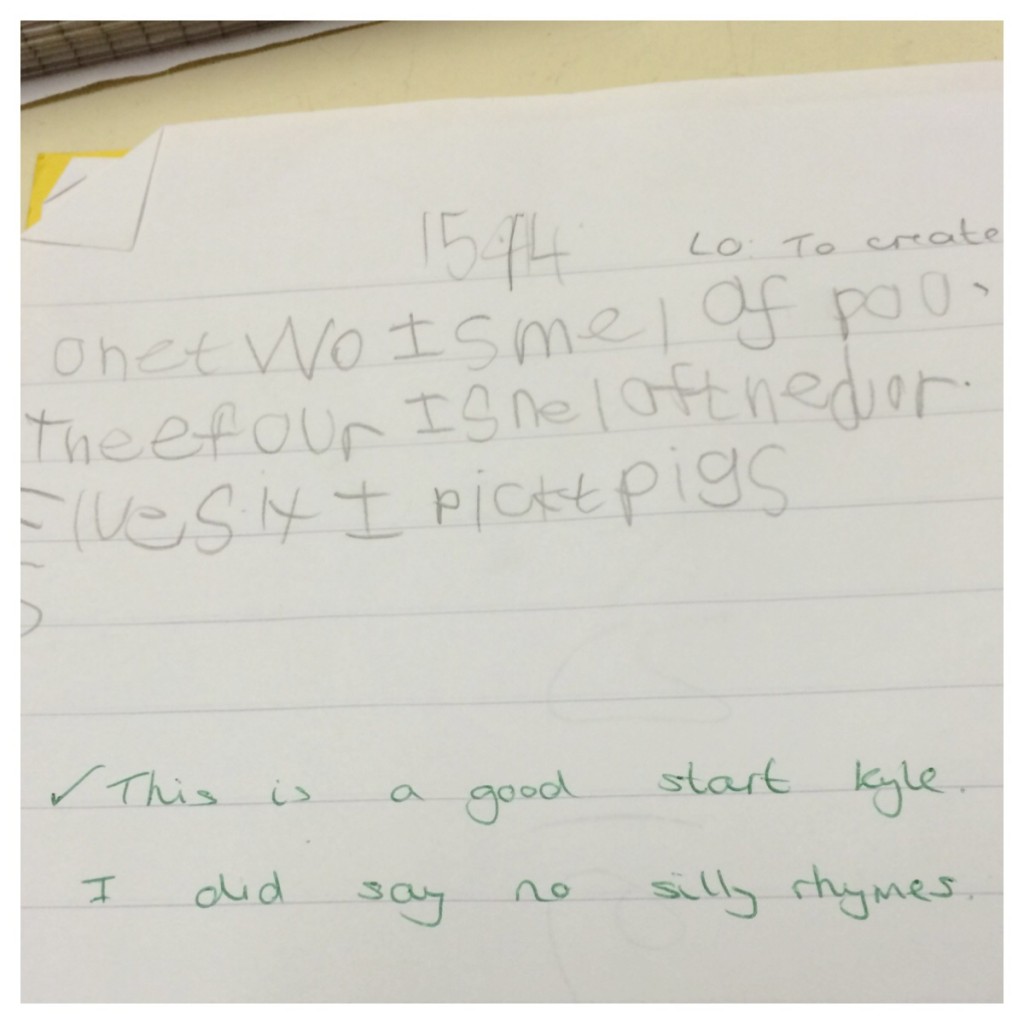 15 4 14 LO: To create
onetwo I smel of poo.
Theefour I Smel oftnedor.
Five Six I pickt pigs
✓ This is a good start Kyle.
I did say no silly rhymes.